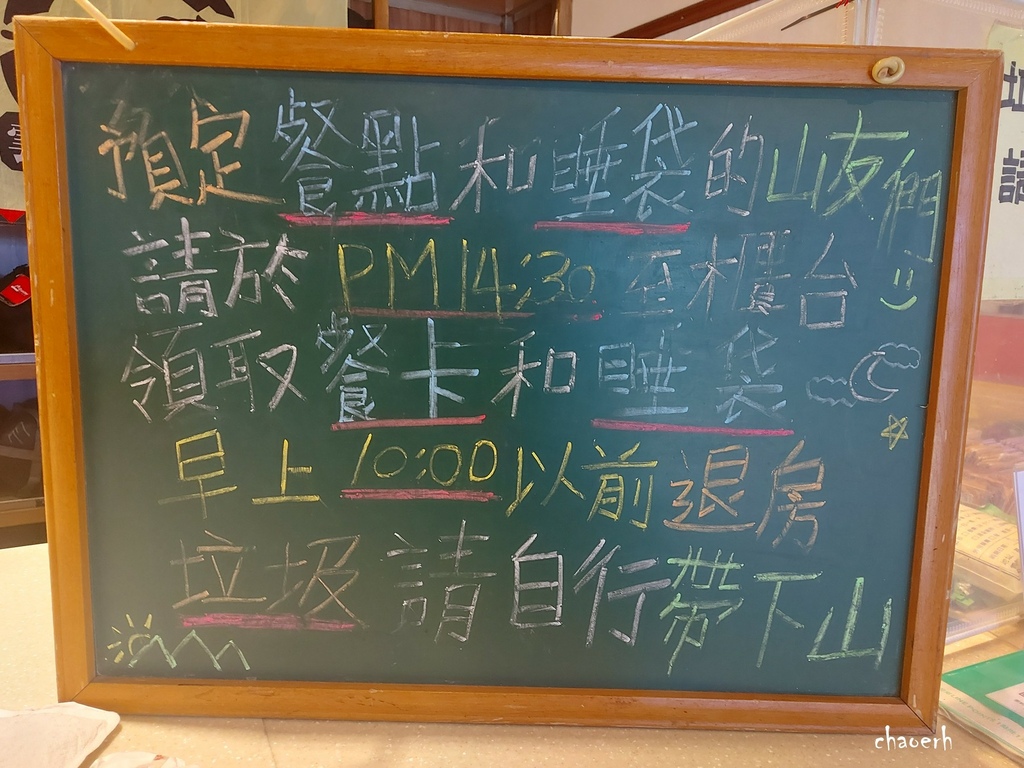 預定餐點和睡袋的山友們
請於 PM 14:30 至櫃台
領取餐卡和睡袋
早上 10:00 以前退房
垃圾請自行帶下山
址
請
chaoerh